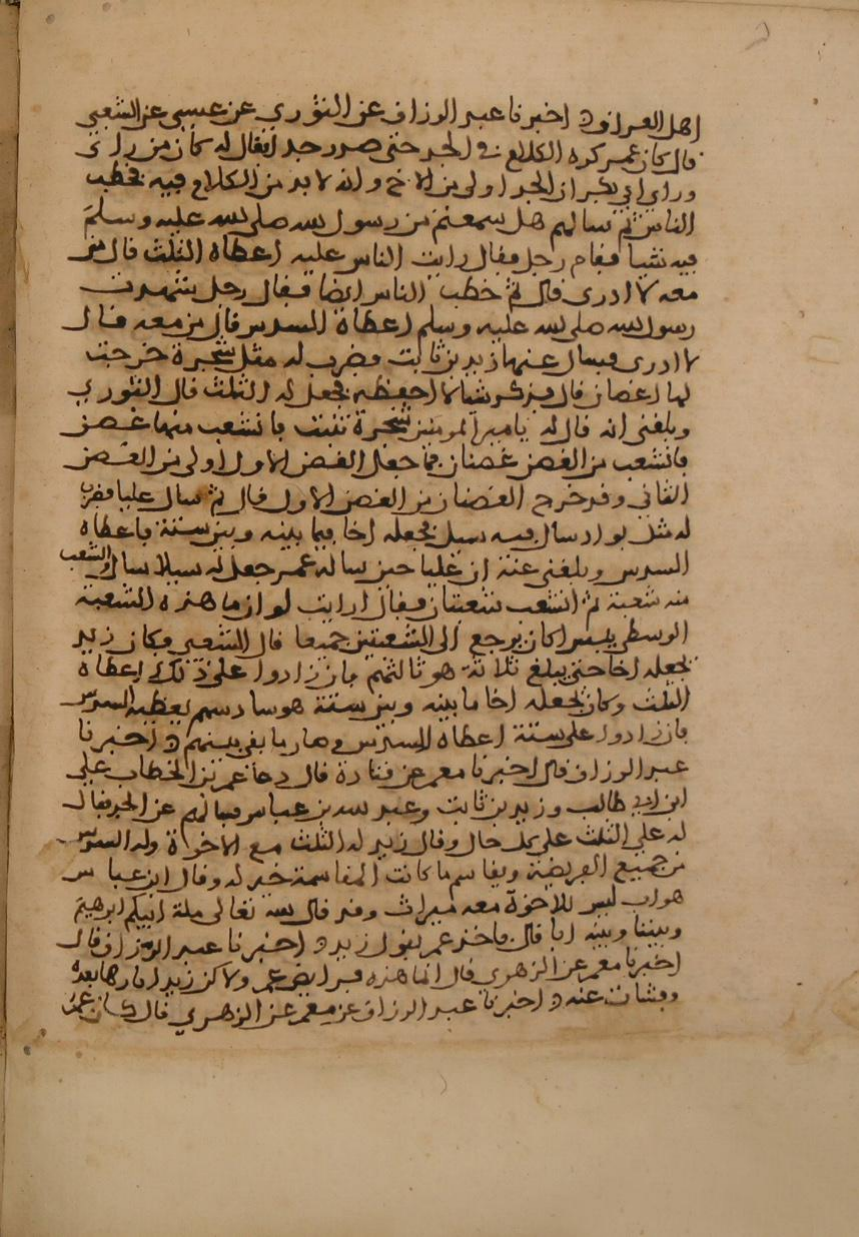 اهل العراق ۝ اخبرنا عبد الرزاق عن الثوري عن عيسى عن الشعبي
قال كان عمر كره الكلام في الجد حتى صار جدا فقال له كان من راى
وراي ابي بكر ان الجد اولى من الاخ وانه لا بد من الكلام فيه فخطب
الناس ثم سالهم هل سمعتم من رسول الله صلى الله عليه وسلم
فيه شيا فقام رجل فقال رايت الناس عليه اعطاه الثلث قال من
معه لا ادرى قال ثم خطب الناس ايضا فقال رجل شهدت
رسول الله صلى الله عليه وسلم اعطاه السدس قال من معه قال
لا ادرى فسال عنها زيد بن ثابت فضرب له مثل شجرة خرجت
لها اغصان قال فذكر شيا لا احفظه فجعل له الثلث قال الثوري
وبلغني انه قال له يا امير المومنين شجرة نبتت فانشعب منها غصن
فانشعب من الغصن غصنان فما جعل الغصن الاول اولى من الغصن
الثاني وقد خرج الغصنان من الغصن الاول قال ثم سال عليا فضرب
له مثل واد سال فيه سيل فجعله اخا فيما بينه وبين ستة فاعطاه
السدس وبلغني عنه ان عليا حين ساله عمر جعل له سيلا سال وانشعب
منه شعبة ثم انشعبت شعبتان فقال ارايت لو ان ما هذه الشعبة
الوسطى يبس اكان يرجع الى الشعبتين جميعا قال الشعبي فكان زيد
يجعله اخا حتى يبلغ ثلاثة هو ثالثهم فان زادوا على ذلك اعطاه
الثلث وكان يجعله اخا ما بينه وبين ستة هو سادسهم يعطيه السدس
فان زادوا على ستة اعطاه السدس وصار ما بقي بينهم ۝ اخبرنا
عبد الرزاق قال اخبرنا معمر عن قتادة قال دعا عمر بن الخطاب علي
ابن ابي طالب وزيد بن ثابت وعبد الله بن عباس فسالهم عن الجد فقال
له علي الثلث على كل حال وقال زيد له الثلث مع الاخوة وله السدس
من جميع الفريضة ويقاسم ما كانت المقاسمة خير له وقال ابن عباس
هو اب ليس للاخوة معه ميراث وقد قال الله تعالى ملة ابيكم ابرهيم
وبيننا وبينه ابا قال فاخذ عمر بقول زيد ۝ اخبرنا عبد الرزاق قال
اخبرنا معمر عن الزهري قال انما هذه فرايض عمر ولاكن زيد اثارها بعده
وفشات عنه ۝ اخبرنا عبد الرزاق عن معمر عن الزهري قال كان عمر